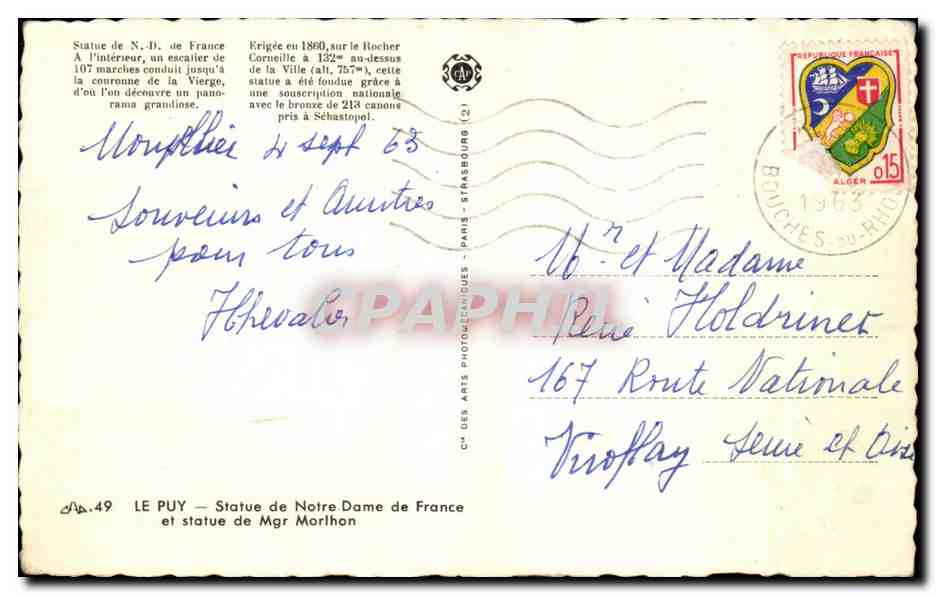 Statue de N.-D. de France
A l'intérieur, un escalier de
107 marches conduit jusqu'à
la couronne de la Vierge,
d'où l'on découvre un pano-
rama grandiose.
Erigée en 1860, sur le Rocher
Corneille à 132m au-dessus
de la Ville (alt. 757m), cette
statue a été fondue grâce à
une souscription nationale
avec le bronze de 213 canons
pris à Sébastopol.
CAP
4 sept 63
Souvenirs et Amitiés
pour tous
Cie DES ARTS PHOTOMÉCANIQUES - PARIS - STRASBOURG (2)
RÉPUBLIQUE FRANÇAISE
ALGER
0,15
BOUCHES-DU-RHÔNE
1963
Mr et Madame
René Holdrinet
167 Route Nationale
Viroflay Seine et Oise
CPAPHIL
CAP.49 LE PUY — Statue de Notre Dame de France
et statue de Mgr Morlhon